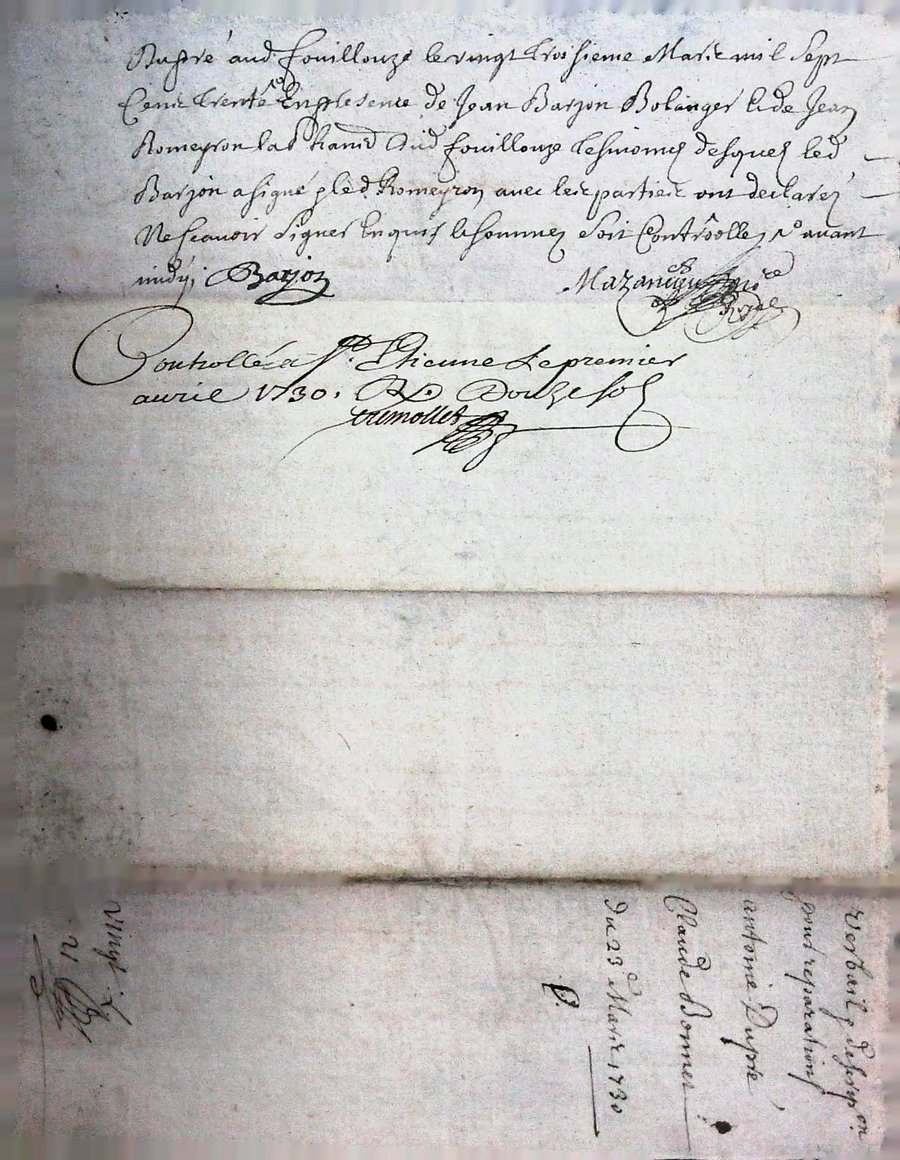 Dupré aud fouillouze le vingt troisieme Mars mil sept
Cent trente En presence de Jean Barjon Bolanger & de Jean
Romeyron dud fouillouze tesmoins desquels led
Barjon a signé & led. Romeyron avec les parties ont declarez
Ne scavoir signer Enquis & sommez Soit Controollez avant
midy; Barjon Mazan
Controllé a St. Etienne Le premier
avril 1730. R. Douze sols
tremollet
Verbail
pour reparations
antoine Dupré
Claude Bonnet
Du 23e Mars 1730
Vingt